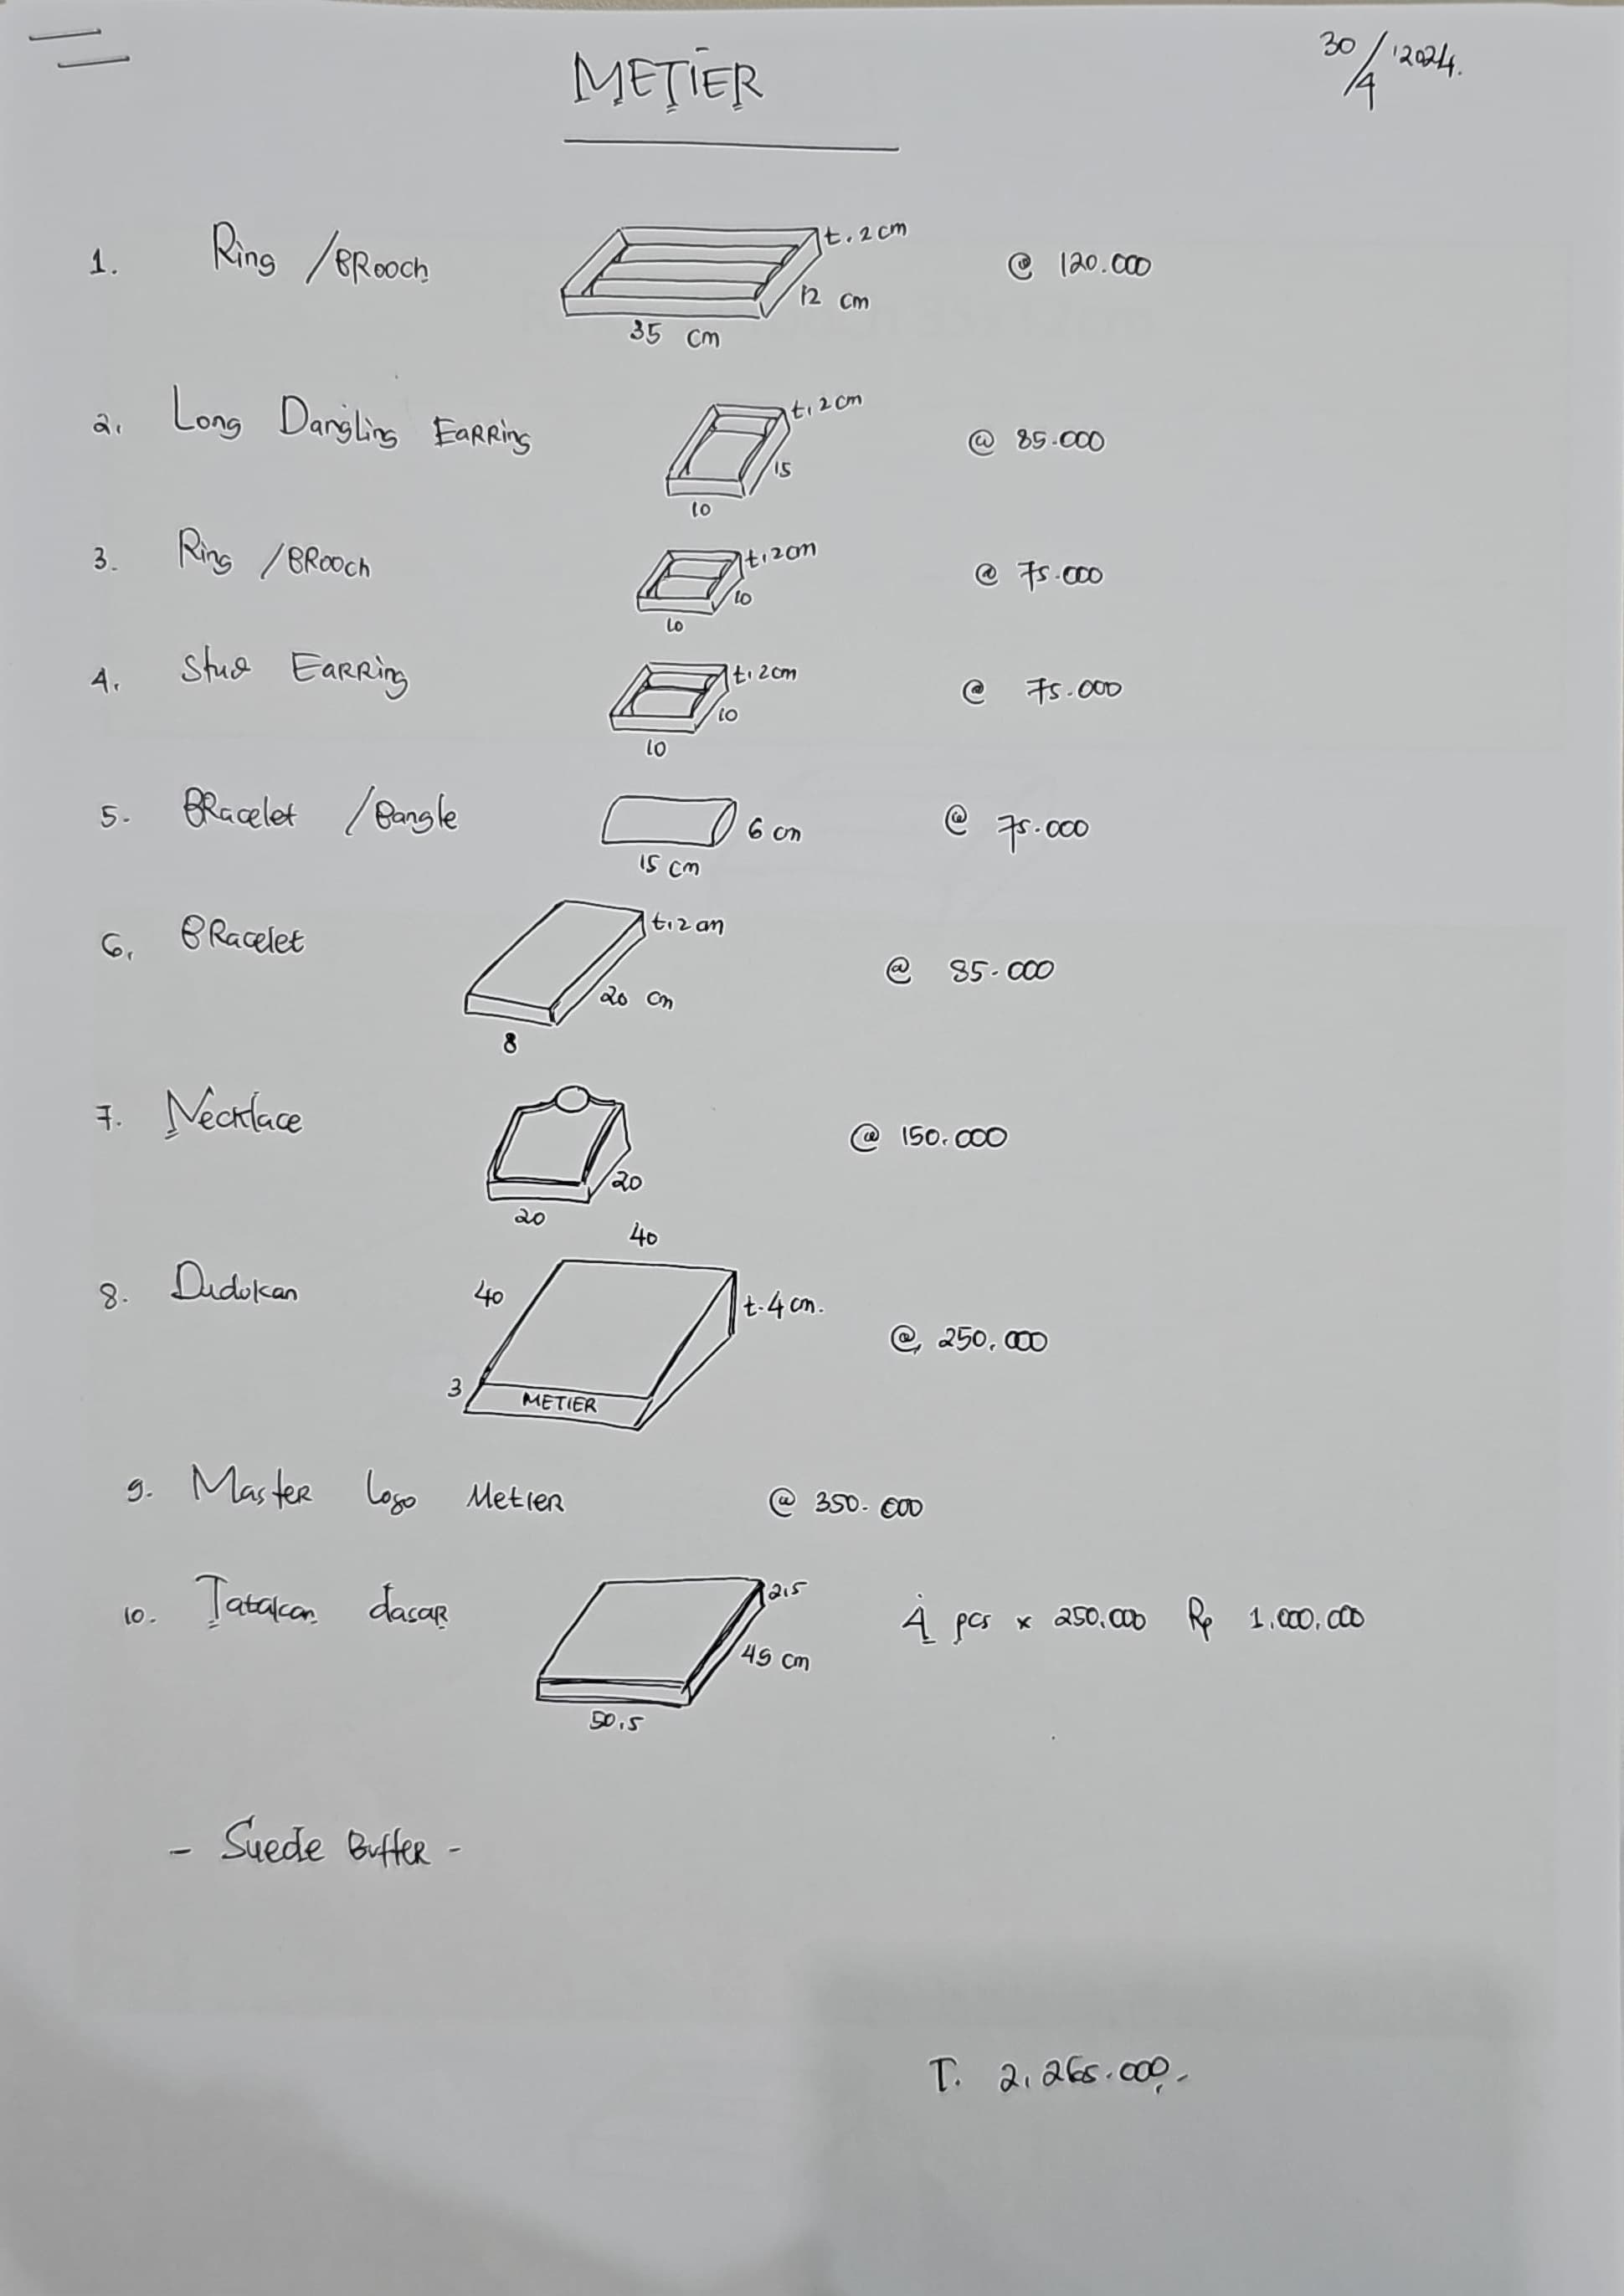 METIER
30/4 '2024.
1. Ring / BRooch t. 2 cm 12 cm 35 cm @ 120.000
2. Long Dangling EaRRing t. 2 cm 15 10 @ 85.000
3. Ring / BRooch t. 2 cm 10 10 @ 75.000
4. Stud EaRRing t. 2 cm 10 10 @ 75.000
5. BRacelet / Bangle 6 cm 15 cm @ 75.000
6. BRacelet t. 2 cm 20 cm 8 @ 85.000
7. Necklace 20 20 @ 150.000
8. Dudukan 40 40 t. 4 cm. 3 METIER @ 250.000
9. Master Logo Metier @ 350.000
10. Tatakan dasar 2,5 49 cm 50,5 4 pcs x 250.000 Rp 1.000.000
- Suede Buffer -
T. 2.265.000,-